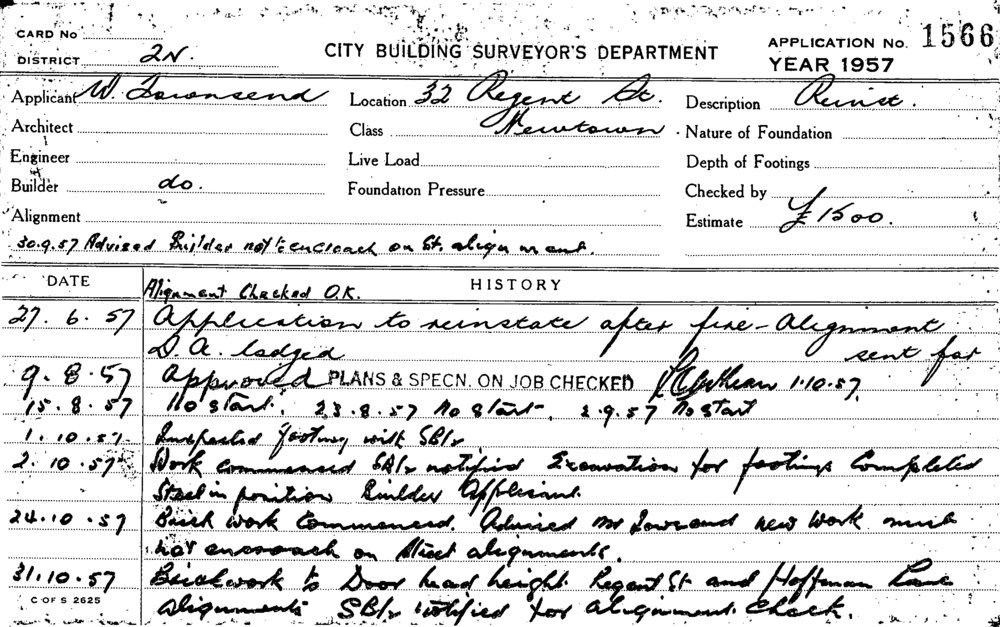 CARD No
DISTRICT 2N.
CITY BUILDING SURVEYOR'S DEPARTMENT
APPLICATION No. 1566
YEAR 1957
Applicant W. Townsend
Location 32 Regent St.
Newtown
Description Reinst.
Architect
Class
Nature of Foundation
Engineer
Live Load
Depth of Footings
Builder do.
Foundation Pressure
Checked by
Alignment
Estimate £1500.
30.9.57 Advised Builder not to encroach on St. alignment.
DATE
HISTORY
Alignment Checked O.K.
27. 6. 57 Application to reinstate after fire - Alignment
D.A. lodged sent for
9. 8. 57 Approved PLANS & SPECN. ON JOB CHECKED 1.10.57.
15. 8. 57 No start. 23.8.57 No start. 2.9.57 No start
1. 10. 57. Inspected footway with SBI/r
2. 10. 57 Work commenced SBI/r notified Excavation for footings Completed
Steel in position Builder Applicant.
24.10.57 Brick work Commenced. Advised Mr new work must
not encroach on Street alignments.
31.10.57 Brickwork to Door head height. Regent St and Hoffman Lane
alignments SBI/r notified for alignment check.
C OF S 2625